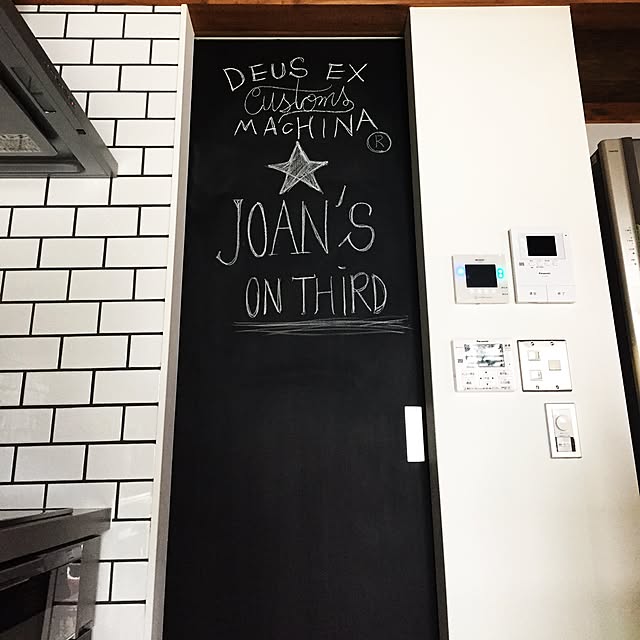 DEUS EX
Customs
MACHINA
R
JOAN'S
ON THIRD
Panasonic